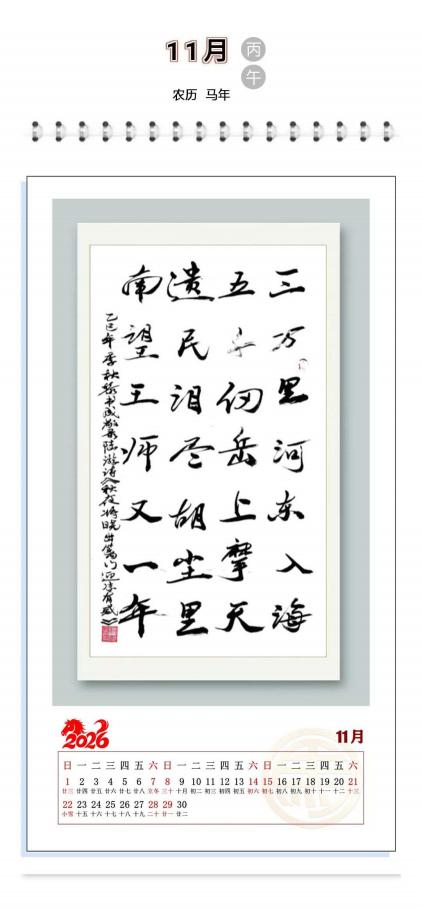 11月 丙午
农历 马年
三万里河东入海
五千仞岳上摩天
遗民泪尽胡尘里
南望王师又一年
乙巳年季秋徐书成敬录陆游诗《秋夜将晓出篱门迎凉有感》
2026
11月
日 一 二 三 四 五 六 日 一 二 三 四 五 六 日 一 二 三 四 五 六
1 2 3 4 5 6 7 8 9 10 11 12 13 14 15 16 17 18 19 20 21
廿三 廿四 廿五 廿六 廿七 廿八 立冬 三十 十月 初二 初三 初四 初五 初六 初七 初八 初九 初十 十一 十二 十三
22 23 24 25 26 27 28 29 30
小雪 十五 十六 十七 十八 十九 二十 廿一 廿二